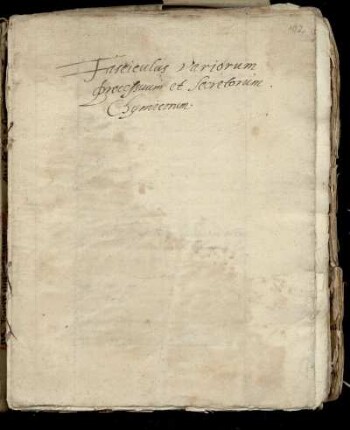 Fasciculus variorum
processuum et secretorum
Chymicorum